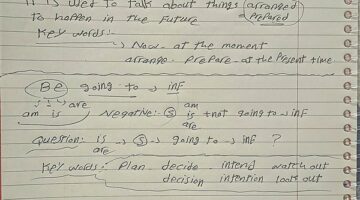 It is used to talk about things arranged
to happen in the future prepared
Key words:-
Now - at the moment
arrange - prepare - at the present time.
Be going to → inf
am is are
Negative:- (S) am is are + not going to → inf
Question: is are → (S) → going to → inf ?
Key words: Plan decide intend watch out
decision intention look out